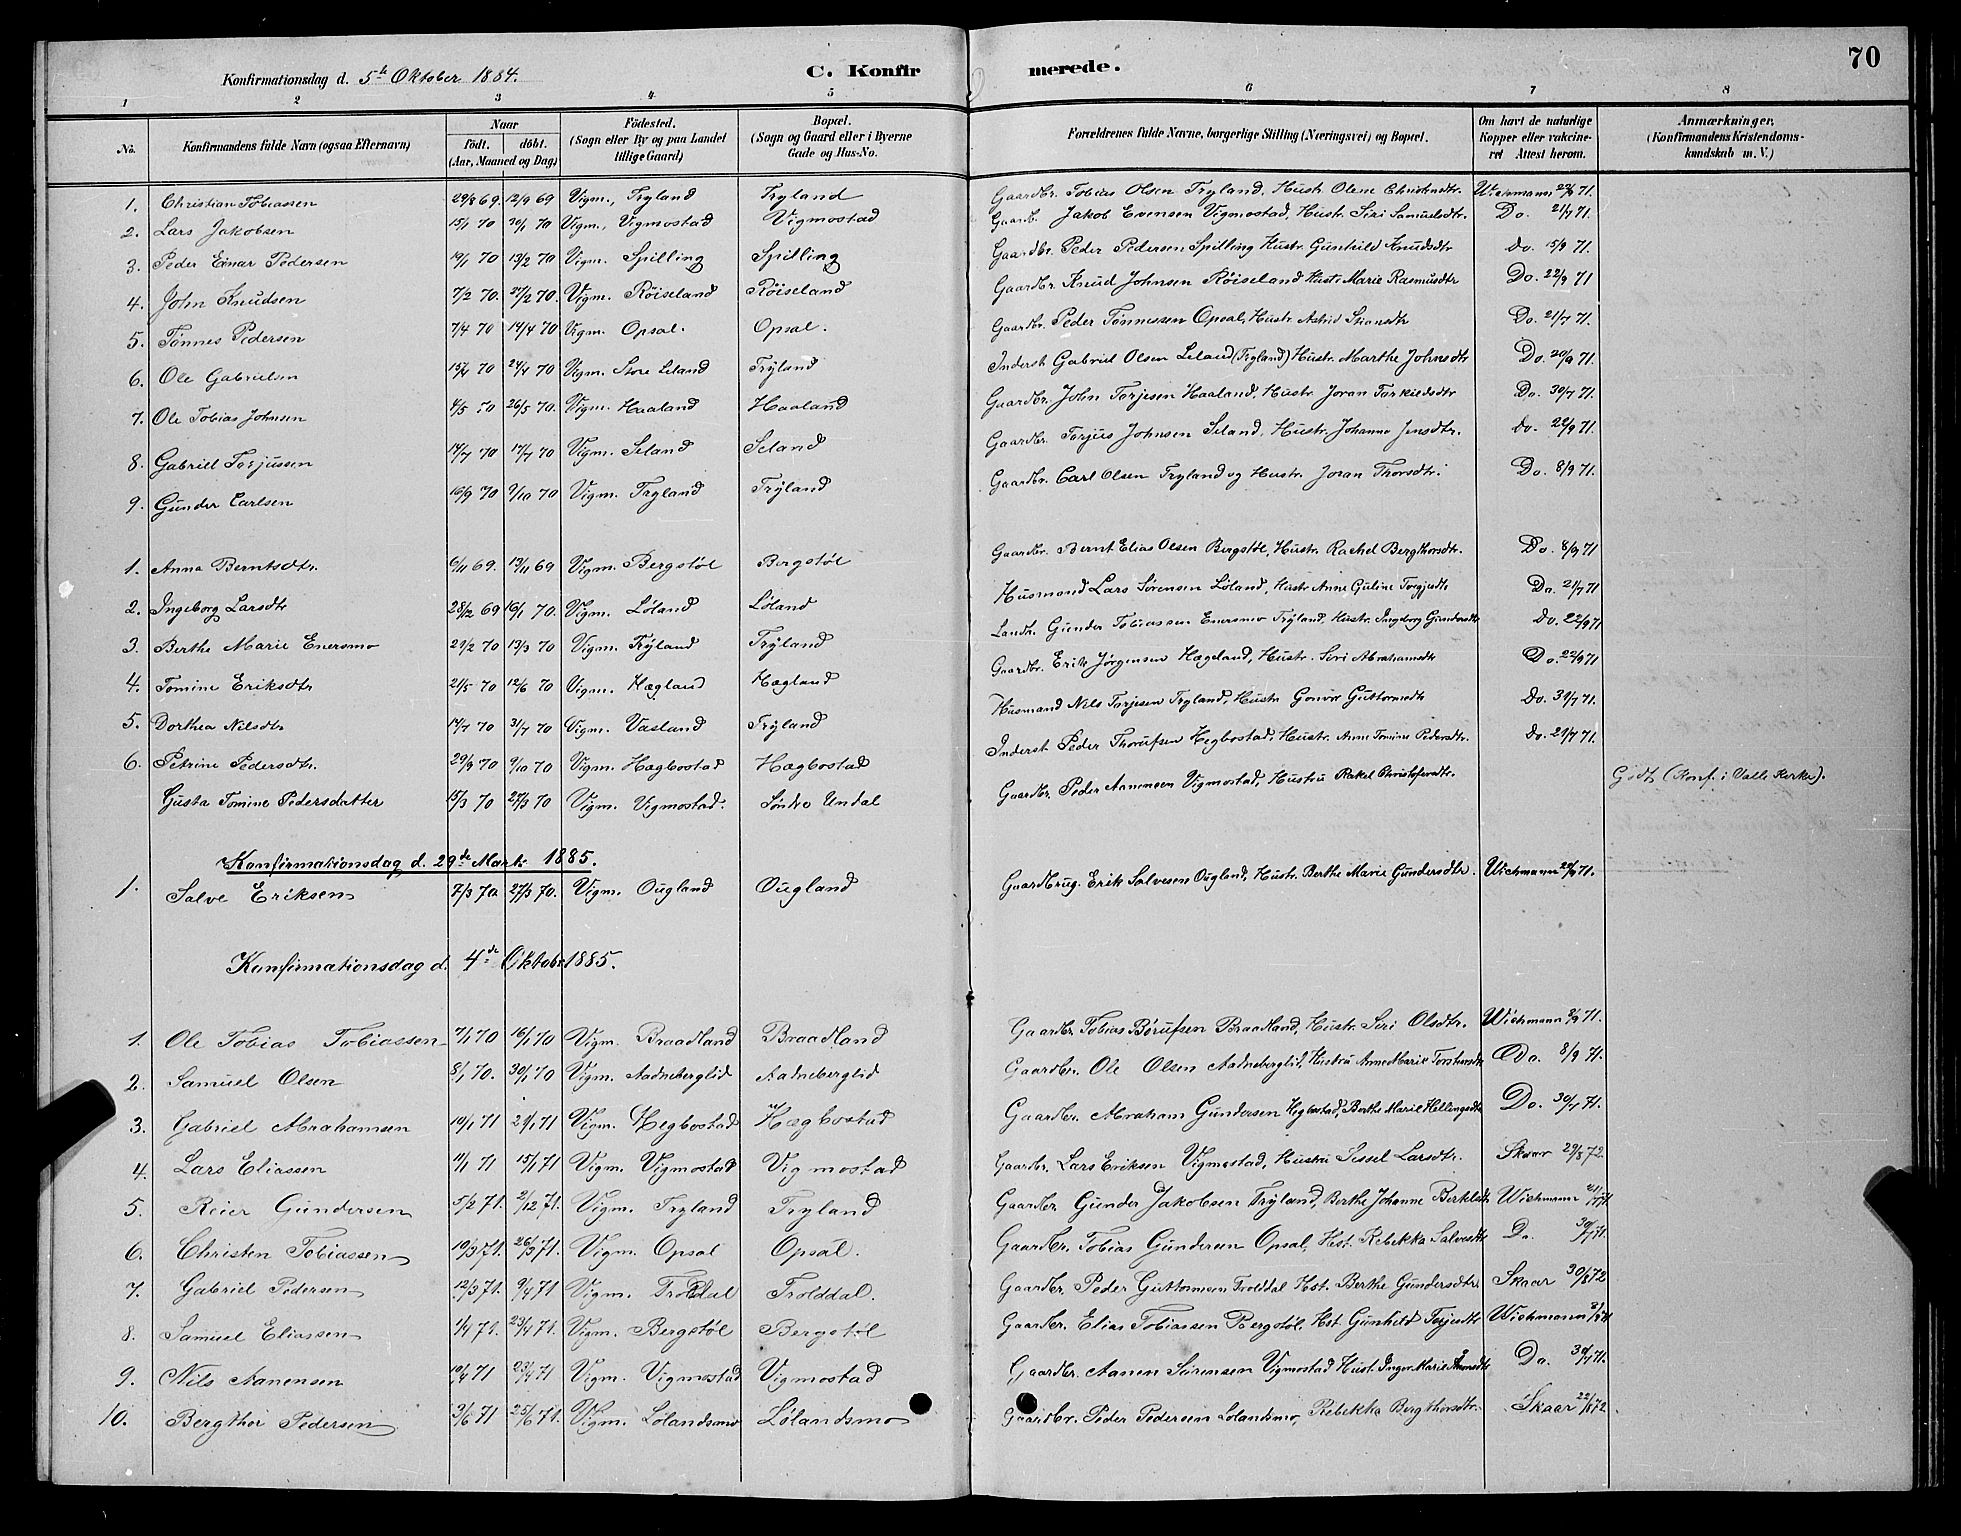 70
Konfirmationsdag d. 5te Oktober 1884. C. Konfirmerede.
1 2 3 4 5 6 7 8
No. Konfirmandens fulde Navn (ogsaa Efternavn) Naar födt. döbt. (Aar, Maaned og Dag) Födested. (Sogn eller By og paa Landet tillige Gaard) Bopæl. (Sogn og Gaard eller i Byerne Gade og Hus-No. Forældrenes fulde Navne, borgerlige Stilling (Næringsvei) og Bopæl. Om havt de naturlige Kopper eller vakcineret Attest herom. Anmærkninger, (Konfirmandens Kristendomskundskab m. V.)
1. Christian Tobiassen 29/8 69. 12/9 69 Vigm., Tryland Tryland Gaardbr. Tobias Olsen Tryland, Hustr. Olene Christensdtr. Wichmann 22/9 71.
2. Lars Jakobsen 15/1 70 30/1 70 Vigm., Vigmostad Vigmostad Gaardb. Jakob Evensen Vigmostad, Hustr. Siri Samuelsdtr. Do. 21/7 71.
3. Peder Einar Pedersen 19/1 70 13/2 70 Vigm. Spilling Spilling Gaardbr. Peder Pedersen Spilling Hustr. Gunhild Knudsdtr Do. 15/9 71.
4. John Knudsen 7/2 70. 27/2 70. Vigm. Röiseland Röiseland Gaardbr Knud Johnsen Röiseland Hustr. Marie Rasmusdtr Do. 22/9 71
5. Tönnes Pedersen 7/4 70 14/4 70 Vigm. Opsal. Opsal. Gaardbr. Peder Tönnessen Opsal, Hustr. Astrid Do. 21/7 71.
6. Ole Gabrielsen 15/4 70 24/4 70 Vigm. Store Leland Tryland Inderst Gabriel Olsen Leland (Tryland) Hustr. Marthe Johnsdtr Do. 20/9 71.
7. Ole Tobias Johnsen 4/5 70 26/5 70. Vigm. Haaland Haaland Gaardbr. John Torjesen Haaland, Hustr. Joran Torkildsdtr Do. 30/7 71.
8. Gabriel Torjussen 14/7 70 17/7 70 Vigm. Seland Seland Gaardbr. Torjus Johnsen Seland, Hustr. Johanne Jensdtr. Do. 22/9 71.
9. Gunder Carlsen 16/9 70 9/10 70 Vigm. Tryland Tryland Gaardbr. Carl Olsen Tryland og Hustr. Joran Thorsdtr. Do. 8/9 71.
1. Anna Berntsdtr. 6/11 69. 13/11 69 Vigm. Bergstöl Bergstöl Gaardbr. Bernt Elias Olsen Bergstöl, Hustr. Rachel Bergthorsdtr. Do. 8/9 71
2. Ingeborg Larsdtr 28/12 69 16/1 70. Vigm. Löland Löland Husmand Lars Sörensen Löland, Hustr. Anne Guline Do. 21/7 71
3. Berthe Marie Enersmo 21/2 70 13/3 70 Vigm. Tryland Tryland Landh. Gunder Tobiassen Enersmo Tryland, Hustr. Ingeborg Gundersdtr Do. 22/9 71
4. Tomine Eriksdtr 21/5 70 12/6 70 Vigm. Hægland Hægland Gaardbr. Erik Jörgensen Hægeland, Hustr. Siri Abrahamsdtr Do. 22/9 71
5. Dorthea Nilsdtr 14/7 70 31/7 70 Vigm. Vasland Tryland Husmand Nils Torjesen Tryland, Hustr Gonvor Guttormsdtr Do. 31/7 71.
6. Petrine Pedersdtr. 29/9 70 9/10 70 Vigm. Hægbostad Hægbostad Inderst Peder Thorufsen Hegbostad, Hustr. Anne Tomine Pedersdtr. Do. 21/7 71.
Gusta Tomine Pedersdatter 15/3 70 27/3 70 Vigm. Vigmostad. Söndre Undal Gaardbr. Peder Aanensen Vigmostad, Hustru Rakel Christofersdtr. Godt (Konf. i Valle Kirke).
Konfirmationsdag d. 29de Marts 1885.
1. Salve Eriksen 7/3 70 27/3 70. Vigm. Ougland Ougland Gaardbrug. Erik Salvesen Ougland, Hustr. Berthe Marie Gundersdtr. Wichmann 22/9 71.
Konfirmationsdag d. 4de Oktober 1885.
1. Ole Tobias Tobiassen 7/1 70 16/1 70 Vigm. Braadland Braadland Gaardbr. Tobias Börufsen Braadland, Hustr. Siri Olsdtr. Wichmann 8/9 71.
2. Samuel Olsen 8/1 70. 30/1 70 Vigm. Aadneberglid Aadneberglid Gaardbr. Ole Olsen Aadneberglid, Hustru Anne Marie Torstensdtr Do. 8/9 71.
3. Gabriel Abrahamsen 10/1 71 29/1 71 Vigm. Hegbostad Hægbostad Gaardbr. Abraham Gundersen Hegbostad, Berthe Marie Hellingsdtr Do. 30/7 71.
4. Lars Eliassen 11/1 71 15/1 71 Vigm. Vigmostad Vigmostad Gaardbr. Lars Eriksen Vigmostad, Hustru Sissel Larsdtr. Skaar 29/8 72.
5. Reier Gundersen 5/2 71. 2/12 71. Vigm. Tryland Tryland Gaardbr. Gunder Jakobsen Tryland, Berthe Johanne Wichmann 21/7 71.
6. Christen Tobiassen 10/3 71. 26/3 71. Vigm. Opsal Opsal. Gaardbr. Tobias Gundersen Opsal, Hst. Rebekka Salvesdtr Do. 30/7 71.
7. Gabriel Pedersen 12/3 71. 9/4 71 Vigm. Troldal Trolddal. Gaardbr. Peder Guttormsen Trolddal Hst. Berthe Gundersdtr. Skaar 30/8 72
8. Samuel Eliassen 1/4 71. 23/4 71. Vigm. Bergstöl Bergstöl Gaardbr. Elias Tobiassen Bergstöl, Hst. Gunhild Torjesdtr Wichmann
9. Nils Aanensen 10/4 71 23/4 71 Vigm. Vigmostad Vigmostad Gaardbr. Aanen Sörensen Vigmostad Hust. Inger Marie Do. 30/7 71.
10. Bergthor Pedersen 3/6 71 25/6 71. Vigm. Lölandsmo Lölandsmo Gaardbr. Peder Pedersen Lölandsmo, Rebekka Bergthorsdtr. Skaar 22/8 72